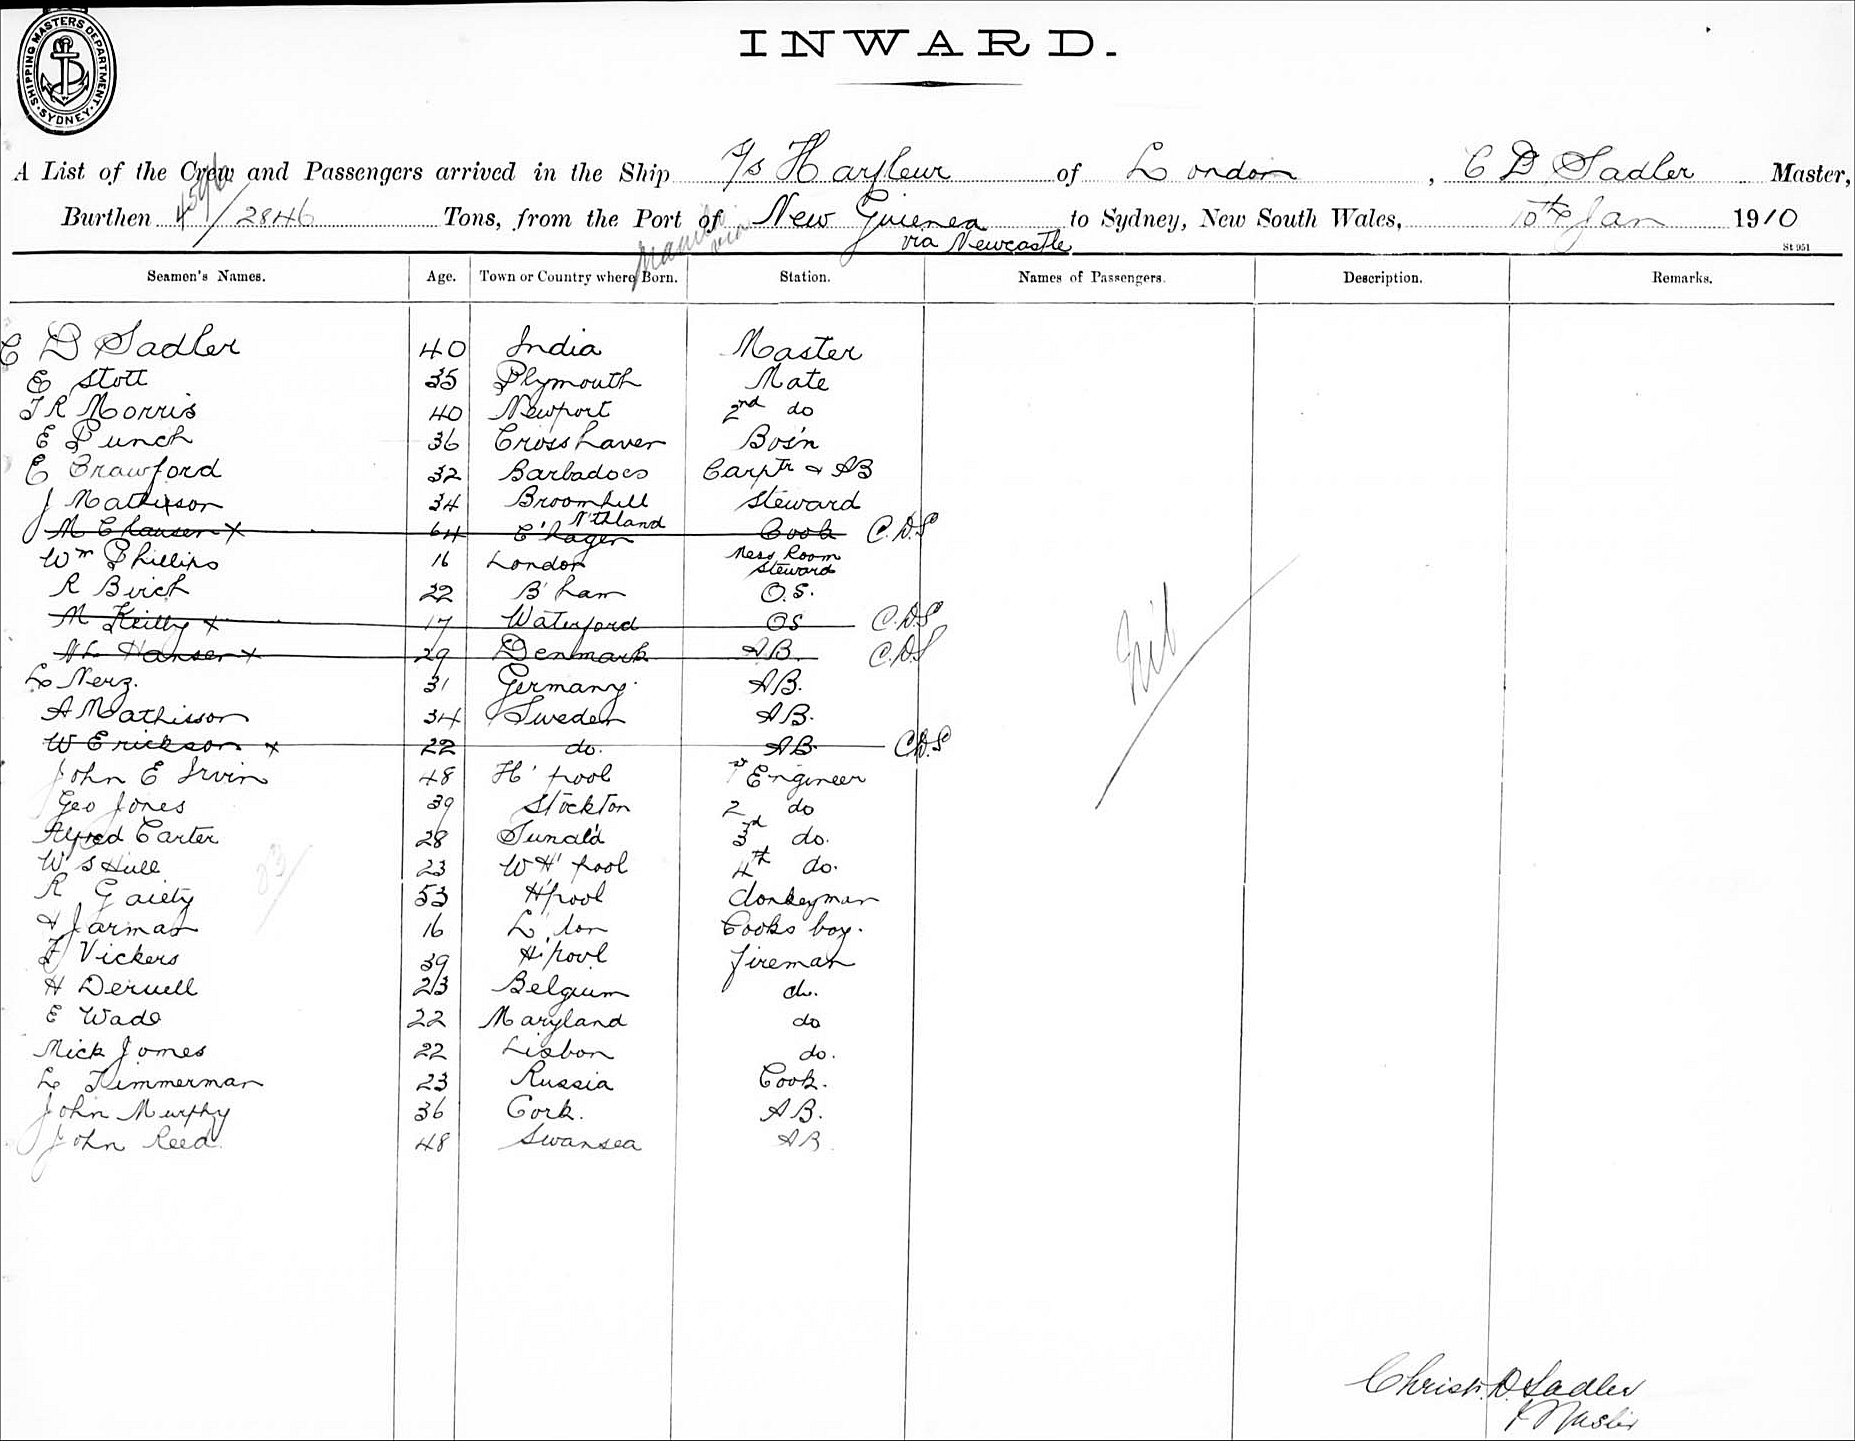 SHIPPING MASTERS DEPARTMENT. SYDNEY.
INWARD.
A List of the Crew and Passengers arrived in the Ship S/s Harfleur of London, C D Sadler Master,
Burthen 4596/2846 Tons, from the Port of New Guienea to Sydney, New South Wales, 10th Jan 1910
Manila via
via Newcastle
St 951
Seamen's Names. Age. Town or Country where Born. Station. Names of Passengers. Description. Remarks.
C D Sadler 40 India Master
E Stott 35 Plymouth Mate
J R Morris 40 Newport 2nd do
E Punch 36 Crosshaven Bos'n
E Crawford 32 Barbadoes Carptr & AB
J Mathisson 34 Broomhill Steward
N'thland
M Chausen x 64 C'hagen Cook C.D.S
Wm Phillips 16 London Mess Room Steward
R Birch 22 B'ham O.S.
M Keilly x 17 Waterford OS C.D.S
Hansen x 29 Denmark AB. C.D.S
L Nerz. 31 Germany. AB.
A Mathisson 34 Sweden AB.
W Erickson x 22 do. AB C.D.S
John E Irvin 48 H'pool 1st Engineer
Geo Jones 39 Stockton 2nd do
Alfred Carter 28 Sunal'd 3rd do.
W S Hull 23 W H'pool 4th do.
R Gaiety 53 H'pool donkeyman
H Jarman 16 L'don Cooks boy.
F Vickers 39 H'pool fireman
H Deruell 23 Belgium do.
E Wade 22 Maryland do
Mick Jomes 22 Lisbon do.
L Zimmerman 23 Russia Cook.
John Murphy 36 Cork. AB.
John Reed 48 Swansea AB.
Nil
23/
Christ. D. Sadler
Master